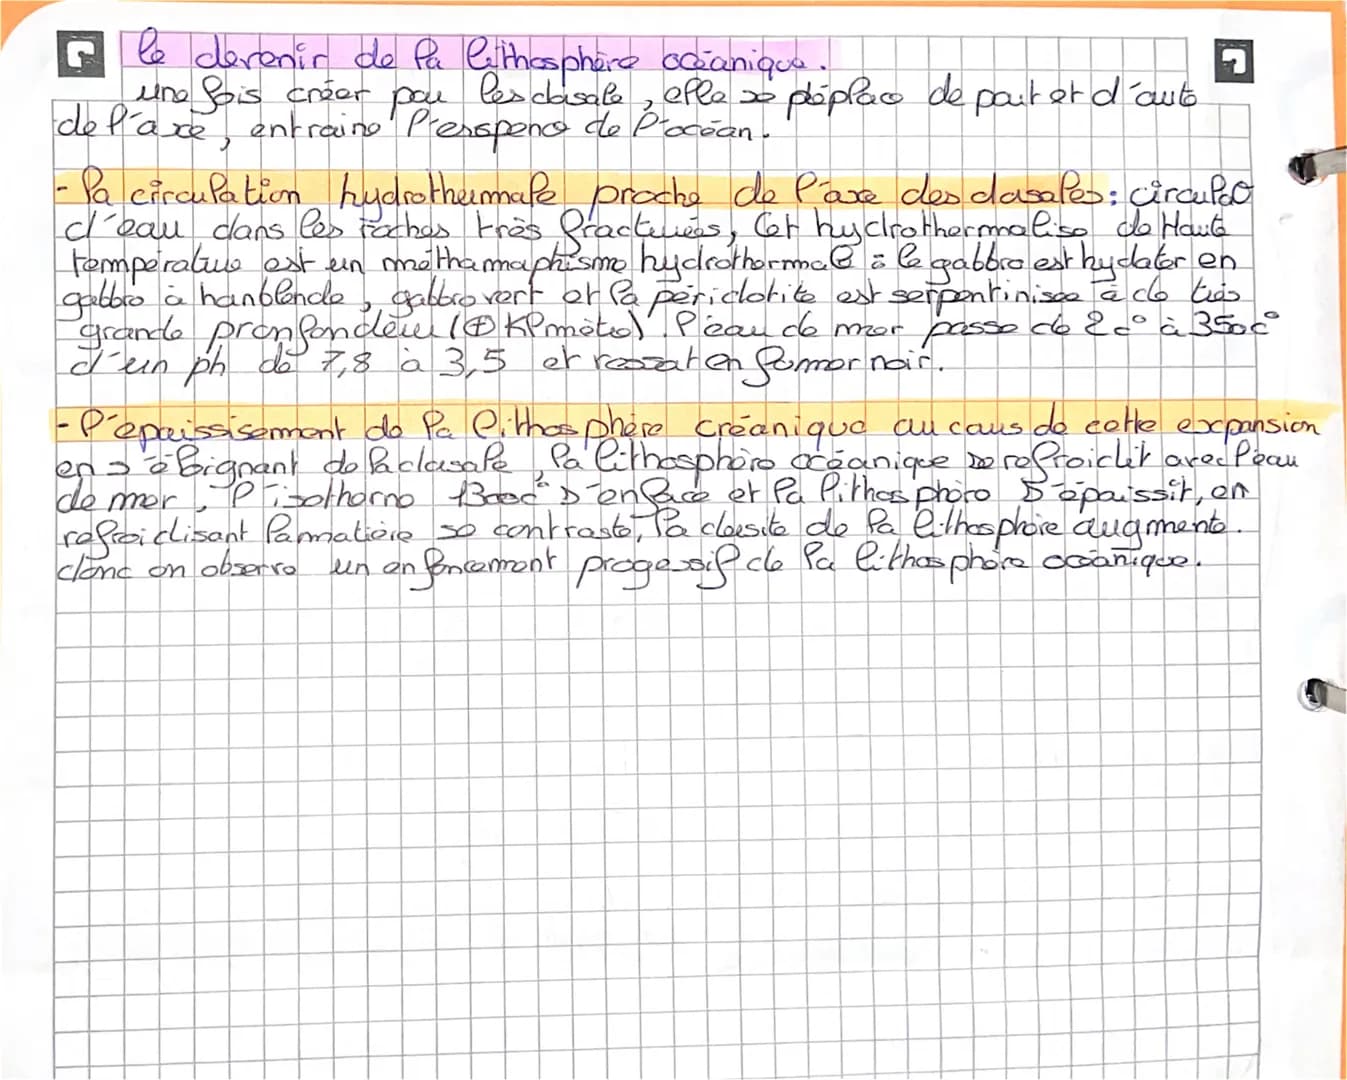 le devenir de la lithosphère océanique.
une fois créer par les dosale, elle se déplace de part et d'autre
de l'axe, entraine l'enspenc de l'océan.
- la circulation hydrothermale proche de l'axe des dosales : circulat
d'eau dans les roches très fracturés, Cet hydrothermalise de Haute
température est un méthamaphisme hydrothermal : le gabbro est hydater en
gabbro à hanblende, gabbro vert et la péridotite est serpentinisée à de très
grande pronfondeur (⊕ KPmète). l'eau de mer passe de 2c° à 350c°
d'un ph de 7,8 à 3,5 et ressort en fumer noir.
- l'épaississement de la lithosphère créanique au cours de cette expansion
en s'éloignant de la dosale, la lithosphère océanique se refroidit avec l'eau
de mer, l'isotherne 1300c° s'enfonce et la lithosphère s'épaissit, en
refroidisant la matière se contraste, la desité de la lithosphère augmente.
donc on observe un enfoncement progessif de la lithosphère océanique.